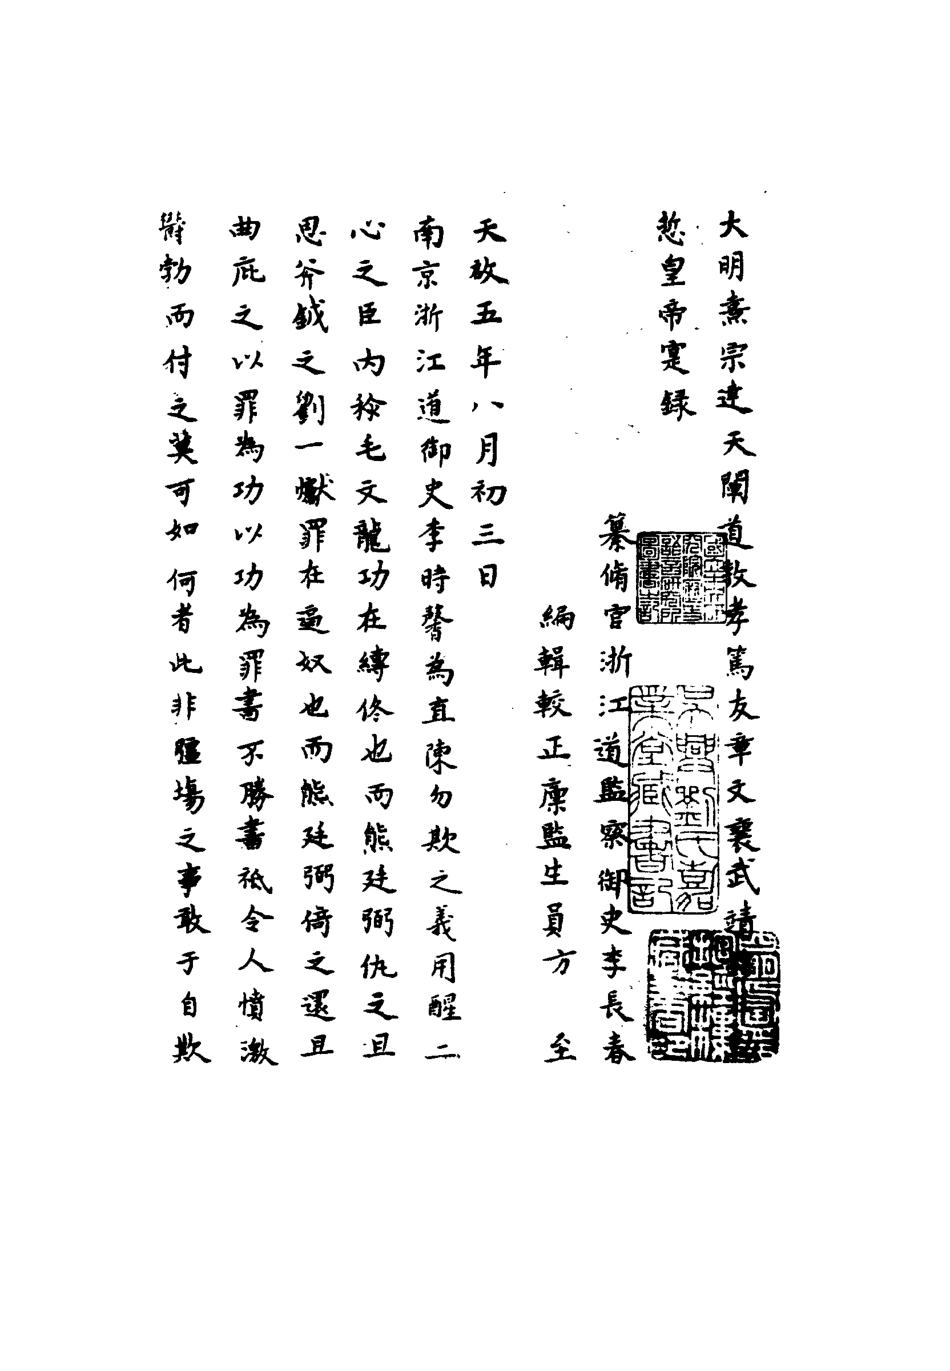 大明熹宗達天闡道敦孝篤友章文襄武靖
悊皇帝寔録
纂脩官浙江道監察御史李長春
編輯較正廩監生員方 至
天啟五年八月初三日
南京浙江道御史李時馨為直陳勿欺之義用醒二
心之臣內稱毛文龍功在縛佟也而熊廷弼仇之且
思斧鉞之劉一㸁罪在逼奴也而熊廷弼倚之還且
曲庇之以罪為功以功為罪書不勝書祗令人憤激
欝勃而付之莫可如何者此非疆場之事敢于自欺
吳興劉氏嘉
業堂藏書記